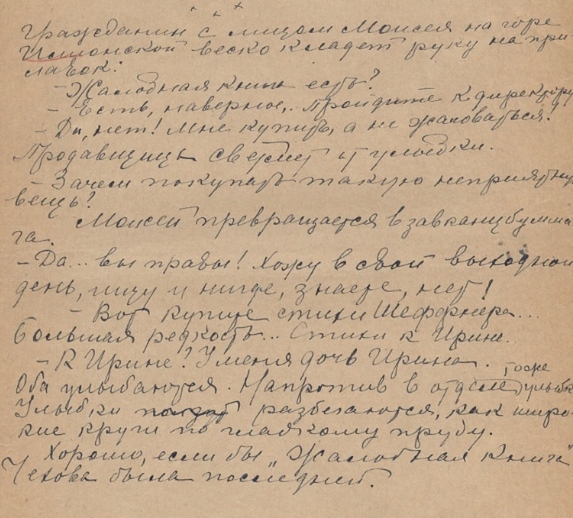 + + +
Гражданин с лицом Моисея на горе
веско кладет руку на при-
лавок:
- Жалобная книга есть?
- Есть, наверное... Пройдите к директору
- Да, нет! Мне купить, а не жаловаться!
Продавщица от улыбки.
- Зачем покупать такую неприятную
вещь?
Моисей превращается в
га.
- Да... вы правы! Хожу в свой выходной
день, ищу и нигде, знаете, нет!
- Вот купите стихи Шеффнера...
Большая редкость... Стихи к Ирине.
- К Ирине? У меня дочь Ирина.
Оба улыбаются. Напротив в отделе тоже улыбка
Улыбки разбегаются, как широ-
кие круги по гладкому пруду.
Хорошо, если бы "Жалобная книга"
Чехова была последней.